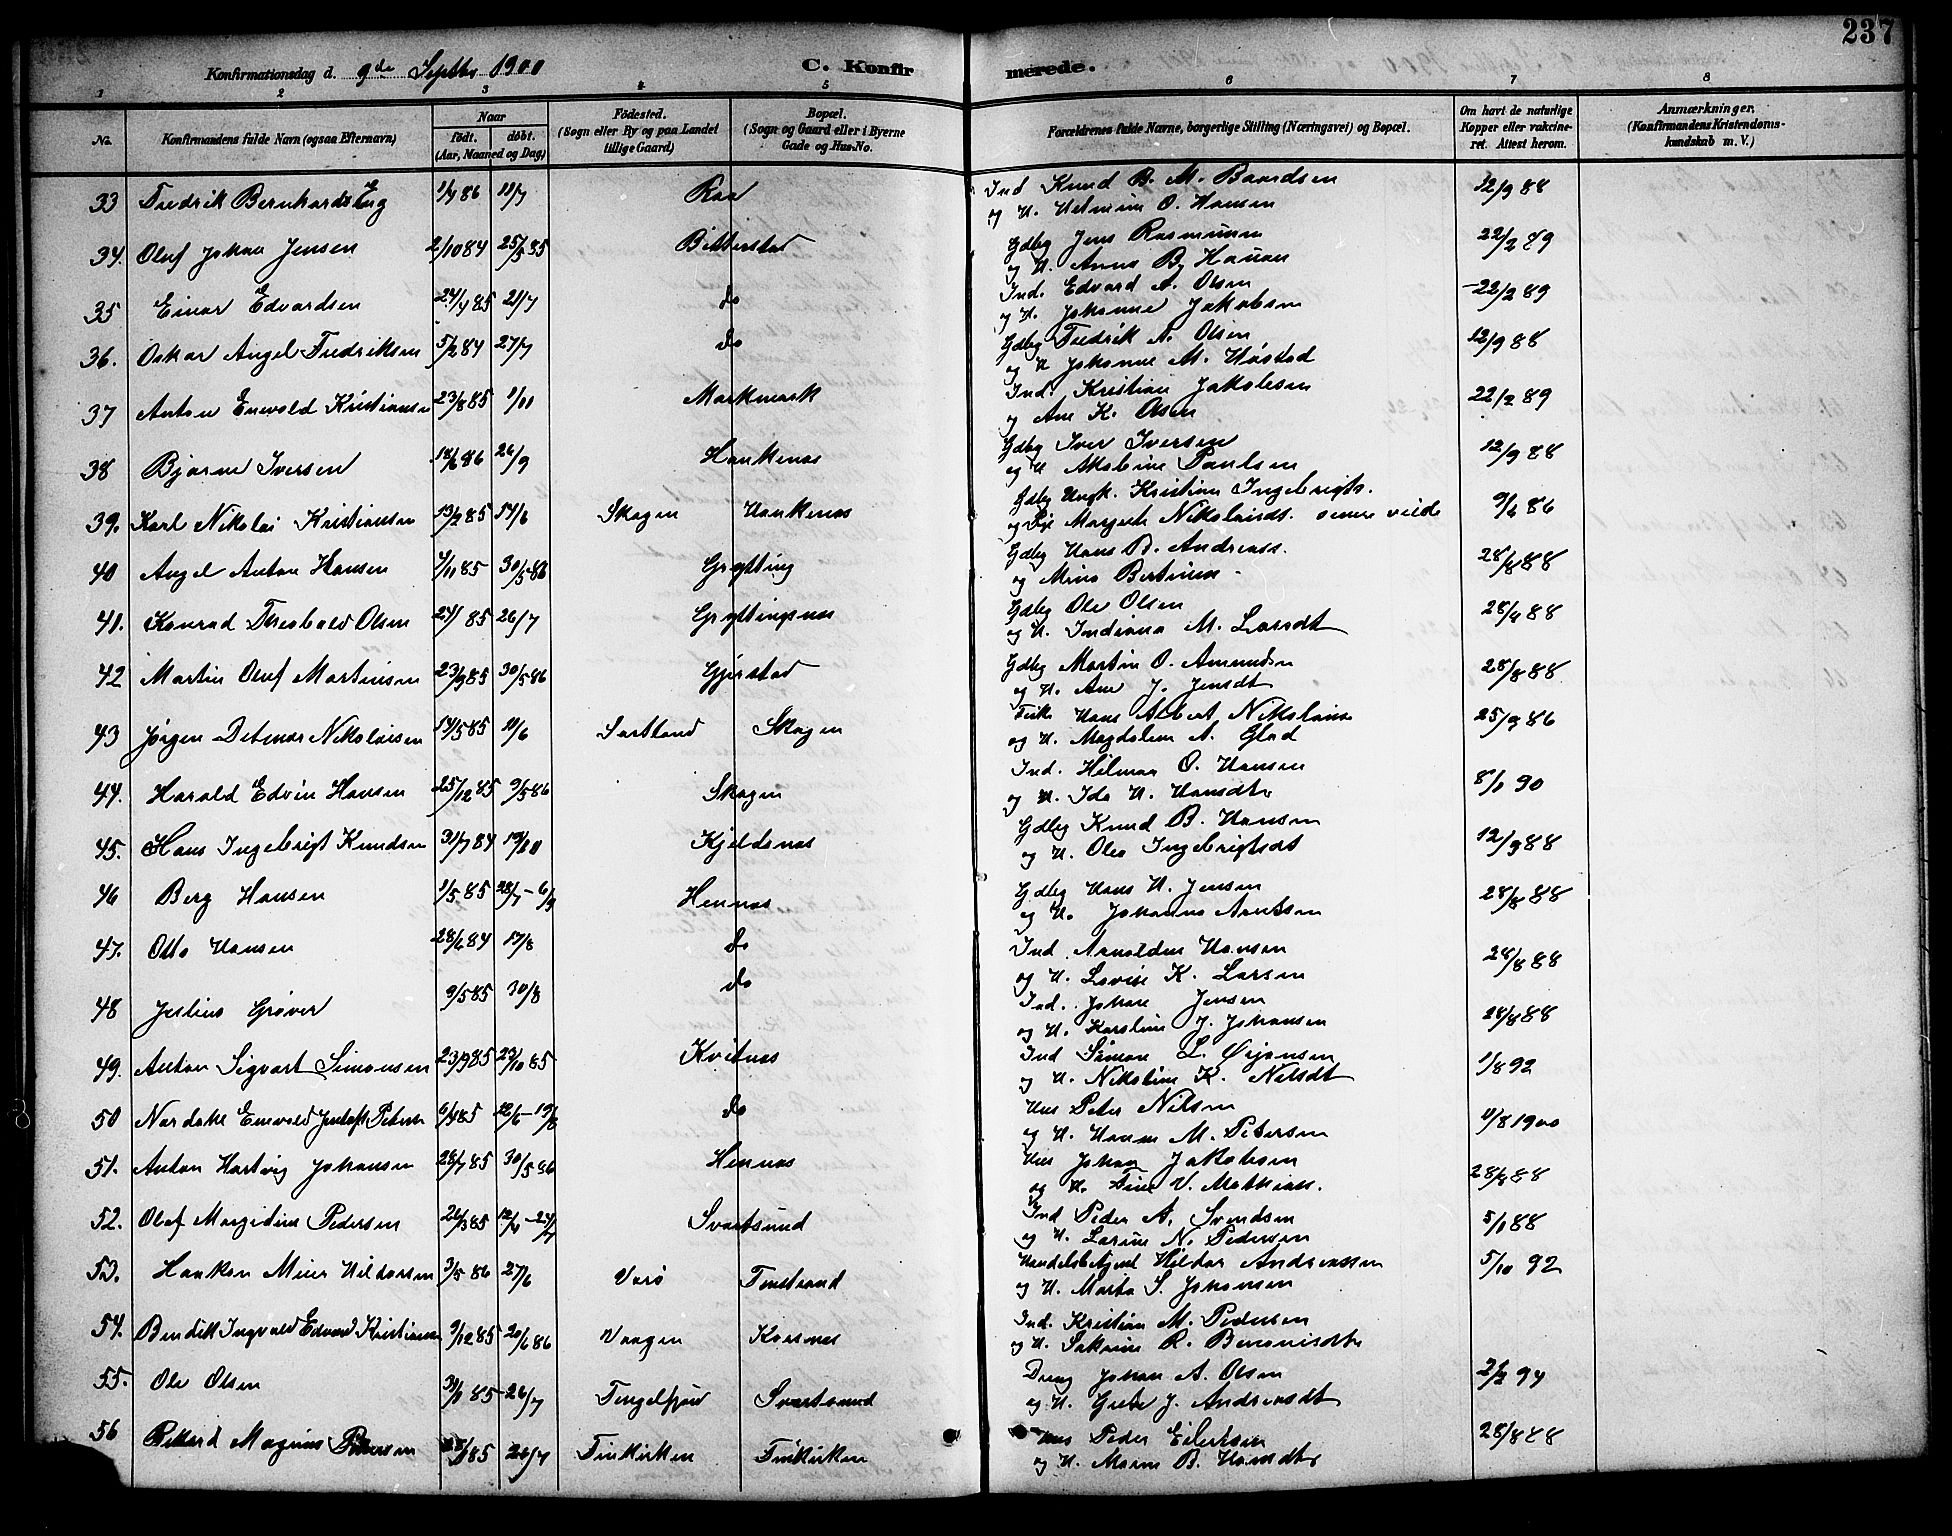 237
Konfirmationsdag d. 9de Septbr 1900 C. Konfir merede.
1 2 3 4 5 6 7 8
No. Konfirmandens fulde Navn (ogsaa Efternavn) Naar födt. döbt. (Aar, Maaned og Dag) Födested. (Sogn eller By og paa Landet tillige Gaard) Bopæl. (Sogn og Gaard eller i Byerne Gade og Hus-No. Forældrenes fulde Navne, borgerlige Stilling (Næringsvei) og Bopæl. Om havt de naturlige Kopper eller vakcineret. Attest herom. Anmærkninger. (Konfirmandens Kristendomskundskab m. V.)
33 Fredrik Bernhard Eng 1/7 86 11/7 Raa Ind Knud B. M. Baardsen 12/9 88
og H. Helmine O. Hansen
34. Oluf Johan Jensen 2/10 84 25/5 85 Bitterstad Gdbg Jens Rasmussen 22/2 89
og H. Anna B. Hansen
35 Einar Edvardsen 24/4 85 21/7 do Ind. Edvard A. Olsen 22/2 89
og H. Johanne Jakobsen
36. Oskar Angel Fredriksen 5/2 84 27/7 do Gdbg Fredrik A. Olsen 12/9 88
og H Johanne M. Høstad
37 Anton Enevold Kristiansen 23/8 85 1/11 Markmark Ind. Kristian Jakobsen 22/2 89
og Ane K. Olsen
38 Bjarne Iversen 18/6 86 26/9 Haukenæs Gdbg Iver Iversen 12/9 88
og H Akseline Paulsen
39. Karl Nikolai Kristiansen 13/2 85 14/6 Skagen Haukenæs Gdbg Ungk. Kristian Ingebrigts. 9/6 86
og Pige Margrete Nikolaisdt. senere viede
40 Angel Anton Hansen 4/11 85 30/5 86 Grytting Gdbg Hans B. Andreass. 28/8 88
og Mina Bertinsen
41. Konrad Theobald Olsen 24/ 85 26/7 Gryttingsnes Gdbg Ole Olsen 28/8 88
og H. Indiana M. Larsdt
42 Martin Oluf Martinsen 23/9 85 30/5 86 Gjerstad Gdbg Martin O. Amundsen 28/8 88
og H. Ane J. Jensdt
43 Jørgen Detmar Nikolaisen 14/5 85 11/6 Sortland Skagen Fisk. Hans Albert Nikolaisen 25/9 86
og H. Magdalena A. Glad
44. Harald Edvin Hansen 25/12 85 9/5 86 Skagen Ind. Hilmar O. Hansen 8/1 90
og H. Ida H. Hansdtr
45. Hans Ingebrigt Knudsen 31/7 84 19/10 Kjeldsnes Gdbg Knud B. Hansen 12/9 88
og H. Olea Ingebrigtsdt
46 Berg Hansen 1/5 85 28/7 - 6/9 Hennes Gdbg Hans H. Jensen 28/8 88
og H. Johanna Arntsen
47. Otto Hansen 28/6 84 17/8 do Ind. Arnoldus Hansen 28/8 88
og H. Lovise K. Larsen
48 Julius Grøver 9/5 85 30/8 do Ind. Johan Jensen 28/8 88
og H. Karoline J. Johansen
49. Anton Sigvart Simonsen 23/9 85 23/10 85 Kvitnes Ind Simon L. Ørjansen 1/8 92
og H. Nikoline K. Nilsdt
50 Nordahl Enevold Petersen 6/4 85 22/6 - 19/8 do Hus Peter Nilsen 4/8 1900
og H. Hanna M. Petersen
51. Anton Hartvig Johansen 28/7 85 30/5 86 Hennes Hus Johan Jakobsen 28/8 88
og H. Tine V. Mathias.
52. Olaf Margidius Pedersen 26/3 85 12/6 - 24/7 Svartsund Ind Peder A. Svendsen 5/1 88
og H. Larine N. Pedersen
53. Haakon Meier Hildorsen 3/5 86 27/6 Værø Finstrand Handelsbetjent Hildor Andreassen 5/10 92
og H. Marta S. Johansen
54. Bendik Ingvald Edvard Kristiansen 9/12 85 20/6 86 Vaagen Korsnes Ind. Kristian M. Pedersen
og H. Sakrine R. Benonisdtr
55. Ole Olsen 31/1 85 26/7 Tengelfjord Svartsund Dreng Johan A. Olsen 2/2 94
og H. Grete J. Andreasdt
56 Rikard Magnus Pedersen 85 26/7 Finkirken Finkirken Hus Peder Eilertsen 28/8 88
og H. Maren B. Hansdtr